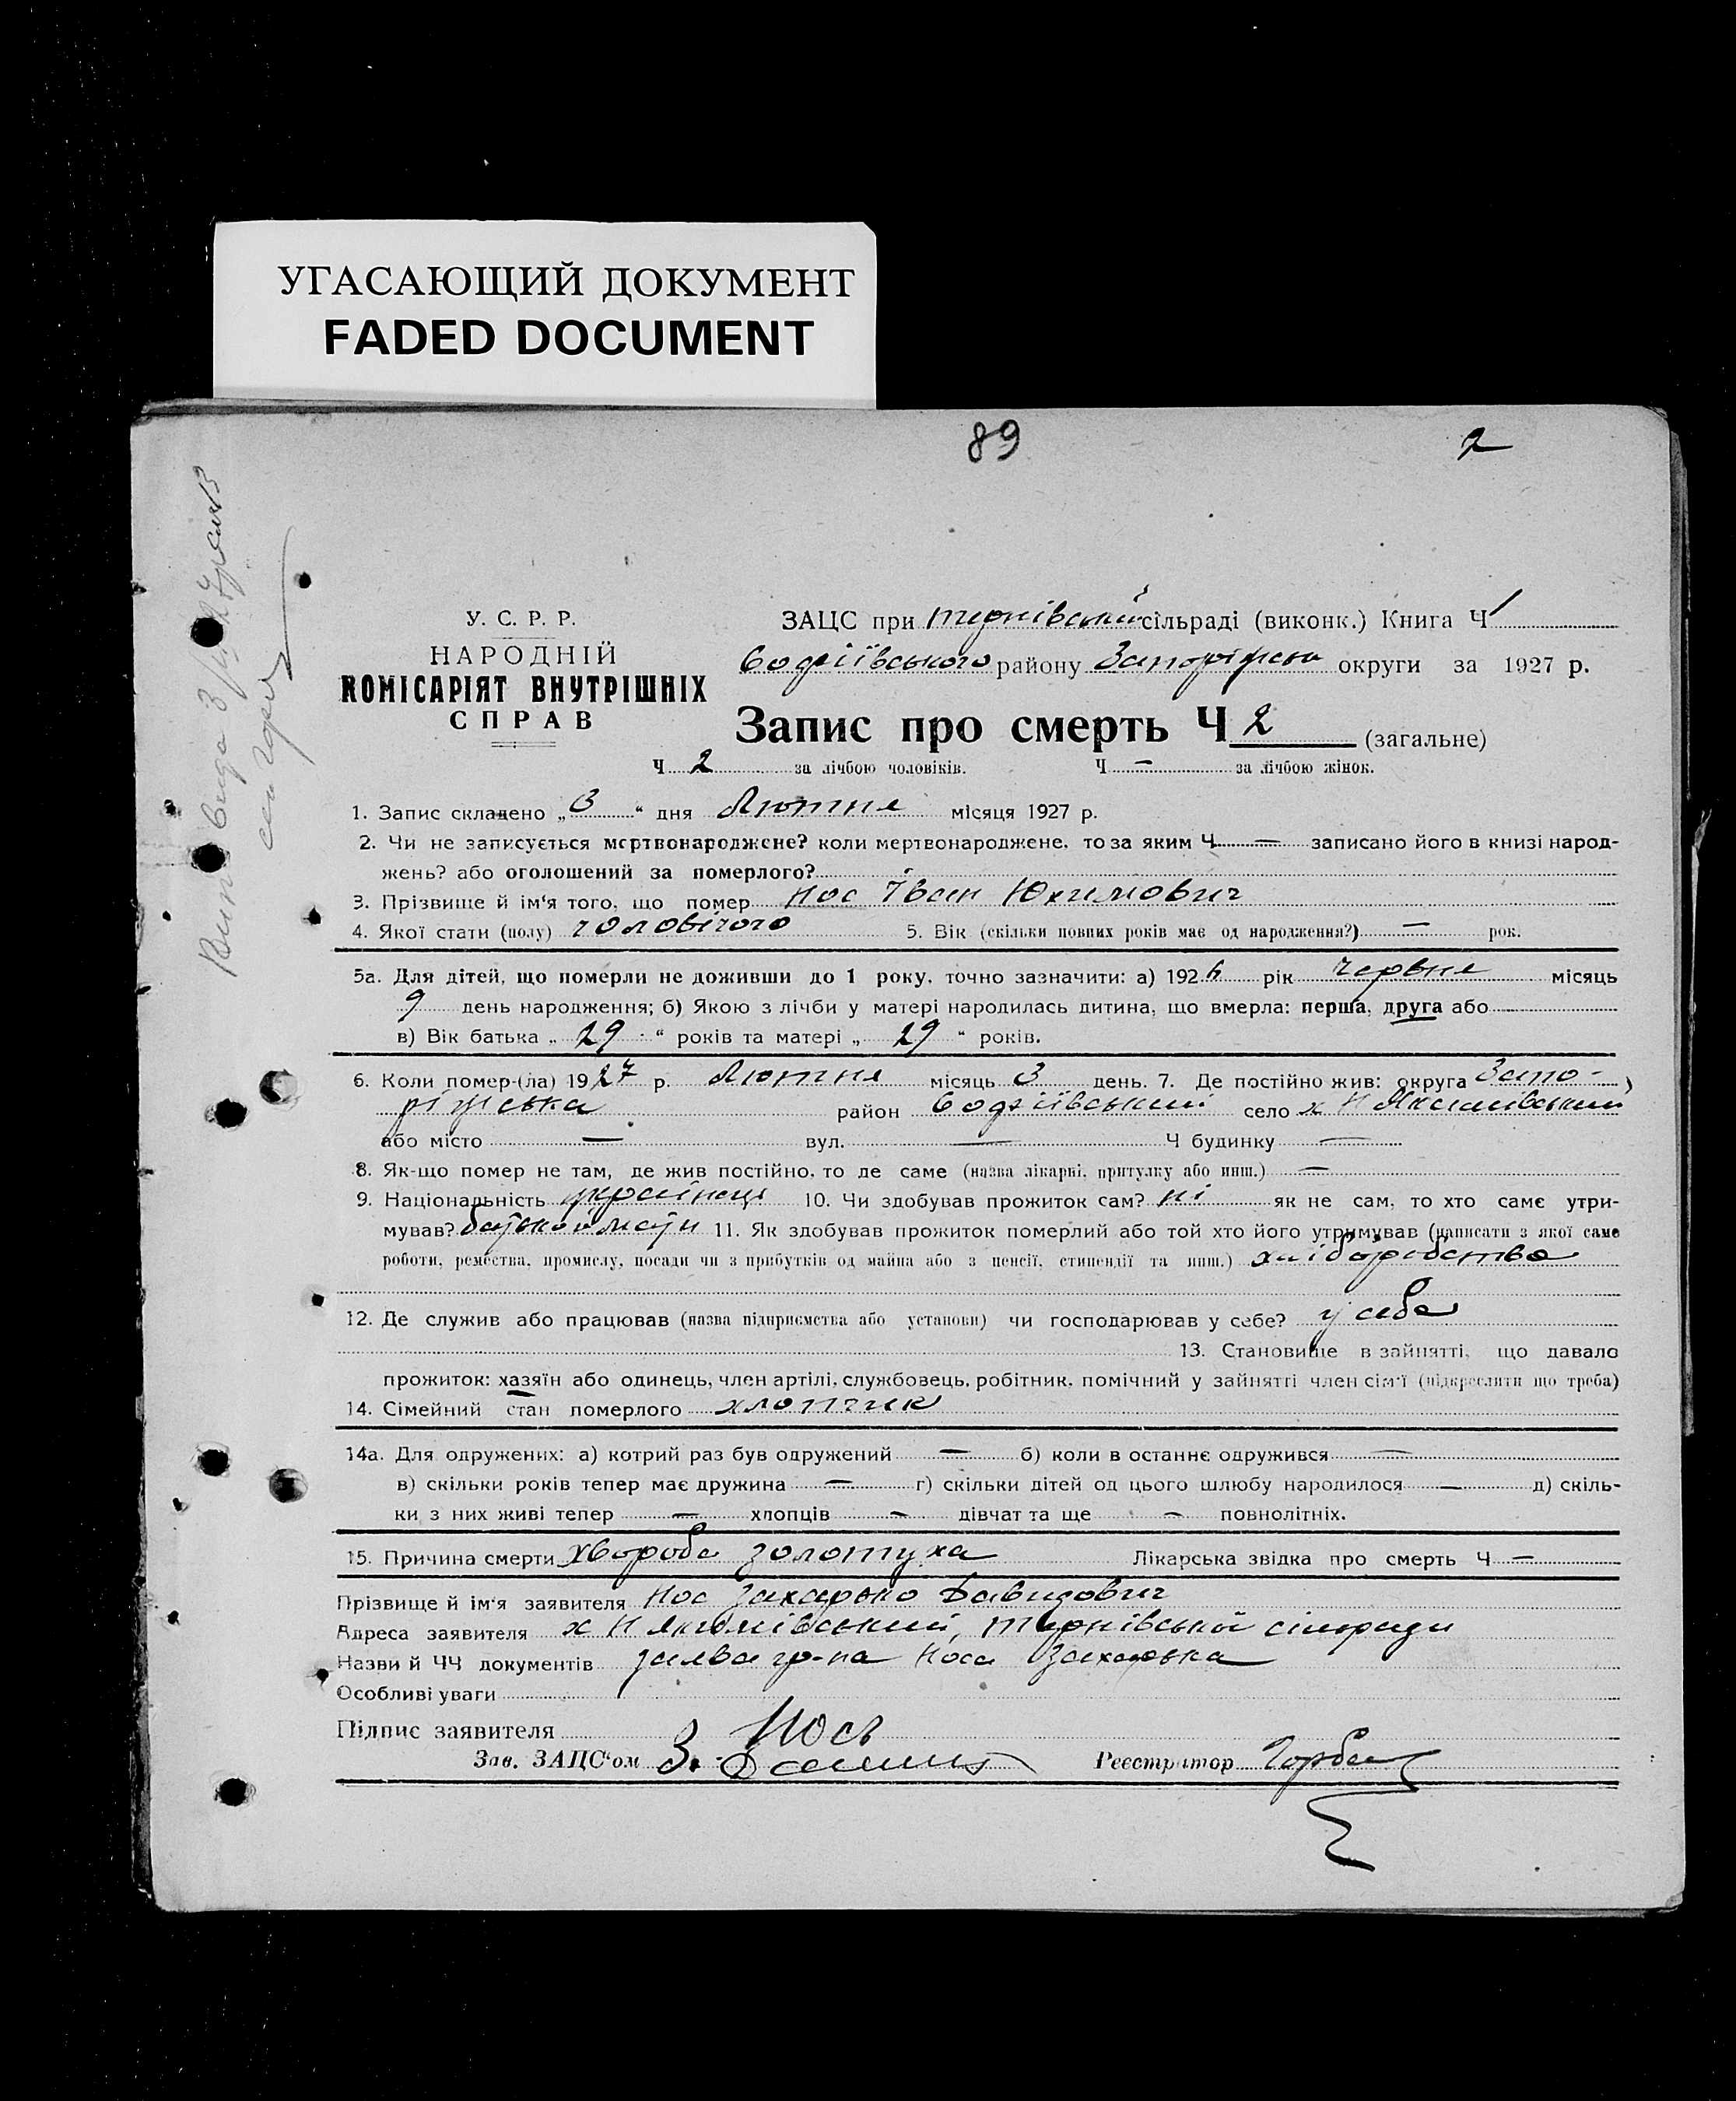 УГАСАЮЩИЙ ДОКУМЕНТ
FADED DOCUMENT
89
2
У. С. Р. Р.
НАРОДНІЙ
КОМІСАРІЯТ ВНУТРІШНІХ
СПРАВ
ЗАЦС при тернівський сільраді (виконк.) Книга Ч 1
району округи за 1927 р.
Запис про смерть Ч 2 (загальне)
Ч 2 за лічбою чоловіків. Ч — за лічбою жінок.
1. Запис складено „3“ дня Лютня місяця 1927 р.
2. Чи не записується мертвонароджене? коли мертвонароджене, то за яким Ч — записано його в книзі народ-
жень? або оголошений за померлого?
3. Прізвище й ім‘я того, що помер Нос Іван Юхимович
4. Якої стати (полу) чоловічого 5. Вік (скільки повних років має од народження?) — рок.
5а. Для дітей, що померли не доживши до 1 року, точно зазначити: а) 1926 рік червня місяць
9 день народження; б) Якою з лічби у матері народилась дитина, що вмерла: перша, друга або
в) Вік батька „29“ років та матері „29“ років.
6. Коли помер-(ла) 1927 р. Лютня місяць 3 день. 7. Де постійно жив: округа Запо-
ріжська район село х Н
або місто — вул. — Ч будинку —
8. Як-що помер не там, де жив постійно, то де саме (назва лікарні, притулку або инш.) —
9. Національність українець 10. Чи здобував прожиток сам? ні як не сам, то хто саме утри-
мував? батько й мати 11. Як здобував прожиток померлий або той хто його утримував (написати з якої саме
роботи, ремества, промислу, посади чи з прибутків од майна або з пенсії, стипендії та инш.) хліборобство
12. Де служив або працював (назва підприємства або установи) чи господарював у себе? у себе
13. Становище в зайнятті, що давало
прожиток: хазяїн або одинець, член артілі, службовець, робітник, помічний у зайнятті член сім‘ї (підкреслити що треба)
14. Сімейний стан померлого хлопчик
14а. Для одружених: а) котрий раз був одружений — б) коли в останнє одружився —
в) скільки років тепер має дружина — г) скільки дітей од цього шлюбу народилося — д) скіль-
ки з них живі тепер — хлопців — дівчат та ще — повнолітніх.
15. Причина смерти хвороба золотуха Лікарська звідка про смерть Ч —
Прізвище й ім‘я заявителя Нос Захарько Давидович
Адреса заявителя х Н Тернівської сільради
Назви й ЧЧ документів заява гр-на Носа Захарька
Особливі уваги
Підпис заявителя Носъ
Зав. ЗАЦС‘ом Реєстратор Горбе